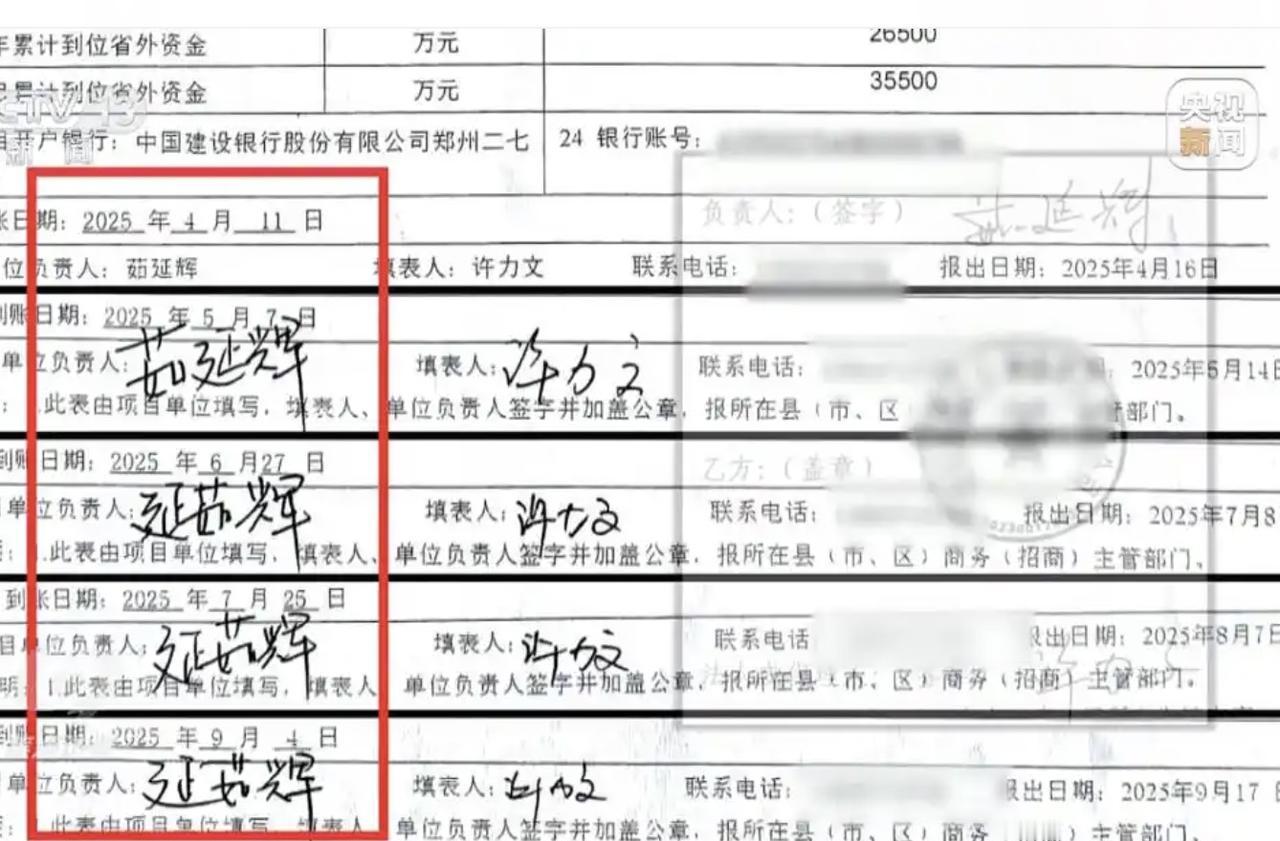 年累计到位省外资金 万元 26500
累计到位省外资金 万元 35500
CCTV 13
新闻
央视
新闻
开户银行：中国建设银行股份有限公司郑州二七 24 银行账号：
账日期：2025 年 4 月 11 日
负责人：（签字） 茹延辉
位负责人：茹延辉 填表人：许力文 联系电话： 报出日期：2025年4月16日
到账日期：2025 年 5 月 7 日
单位负责人：茹延辉 填表人：许力文 联系电话： 2025年5月14日
：1.此表由项目单位填写，填表人、单位负责人签字并加盖公章，报所在县（市、区） 管部门。
到账日期：2025 年 6 月27 日
乙方：（盖章）
单位负责人：延茹辉 填表人：许力文 联系电话： 报出日期：2025年7月8
：1.此表由项目单位填写，填表人、单位负责人签字并加盖公章，报所在县（市、区）商务（招商）主管部门、
到账日期：2025 年 7 月 25 日
目单位负责人：延茹辉 填表人：许力文 联系电话 报出日期：2025年8月7日
明：1.此表由项目单位填写，填表人、单位负责人签字并加盖公章，报所在县（市、区）商务（招商）主管部门。
到账日期：2025 年 9 月 4 日
单位负责人：延茹辉 填表人： 联系电话： 报出日期：2025年9月17 日
：1.此表由项目单位填写，填表人、单位负责人签字并加盖公章，报所在县（市、区）商务（招商）主管部门、